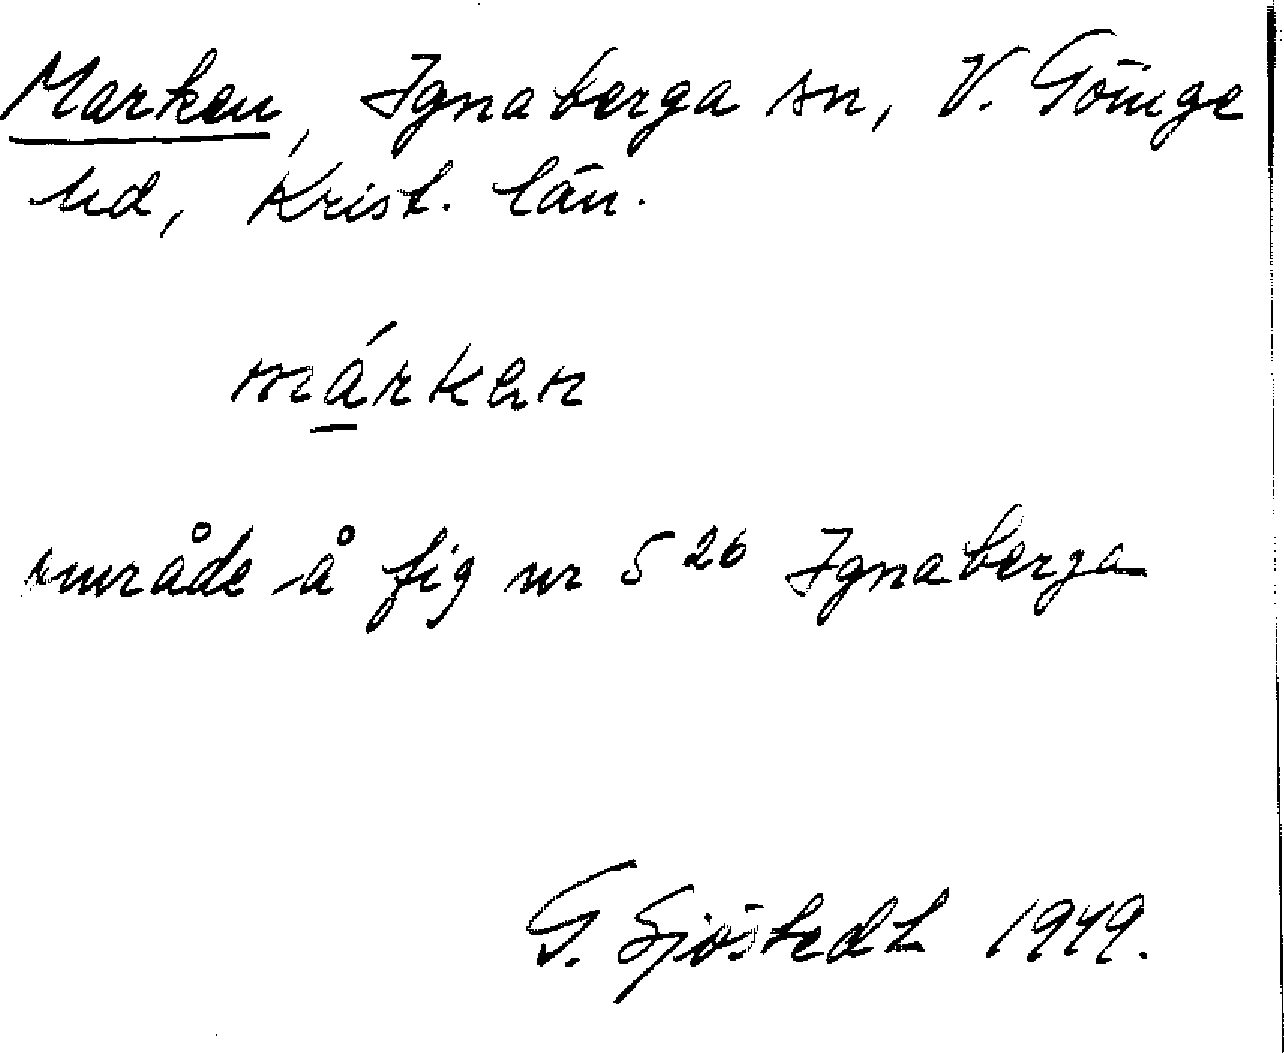 Marken, Ignaberga sn, V. Göinge
hd, Krist. län.
márken
område å fig nr 5 26 Ignaberga
G. Sjöstedt 1949.